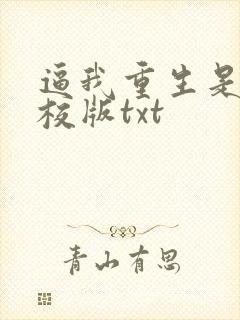 逼我重生是
校版txt
青山有思